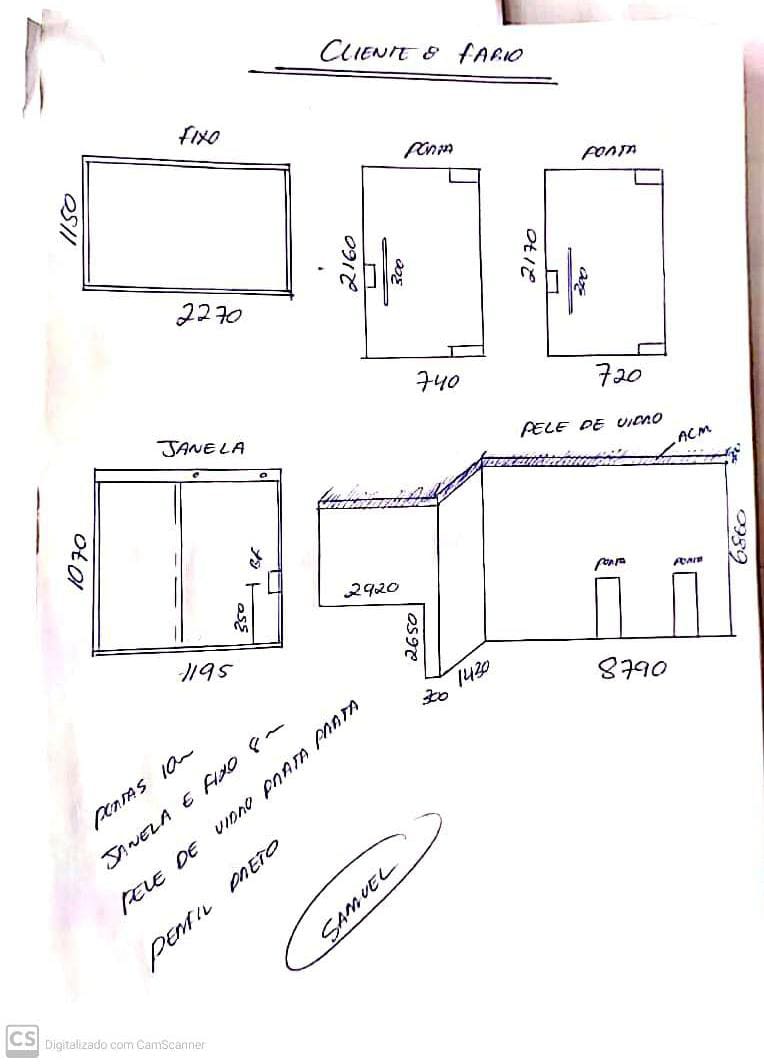 CLIENTE : FABIO
FIXO
PORTA
PORTA
1150
2160
300
2170
300
2270
740
720
JANELA
PELE DE VIDRO
ACM
1070
BK
350
2920
2650
PORTA
PORTA
6860
1195
300
1420
8790
PORTAS 10
JANELA E FIXO 8
PELE DE VIDRO PRATA PRATA
PERFIL PRETO
SAMUEL
CS Digitalizado com CamScanner